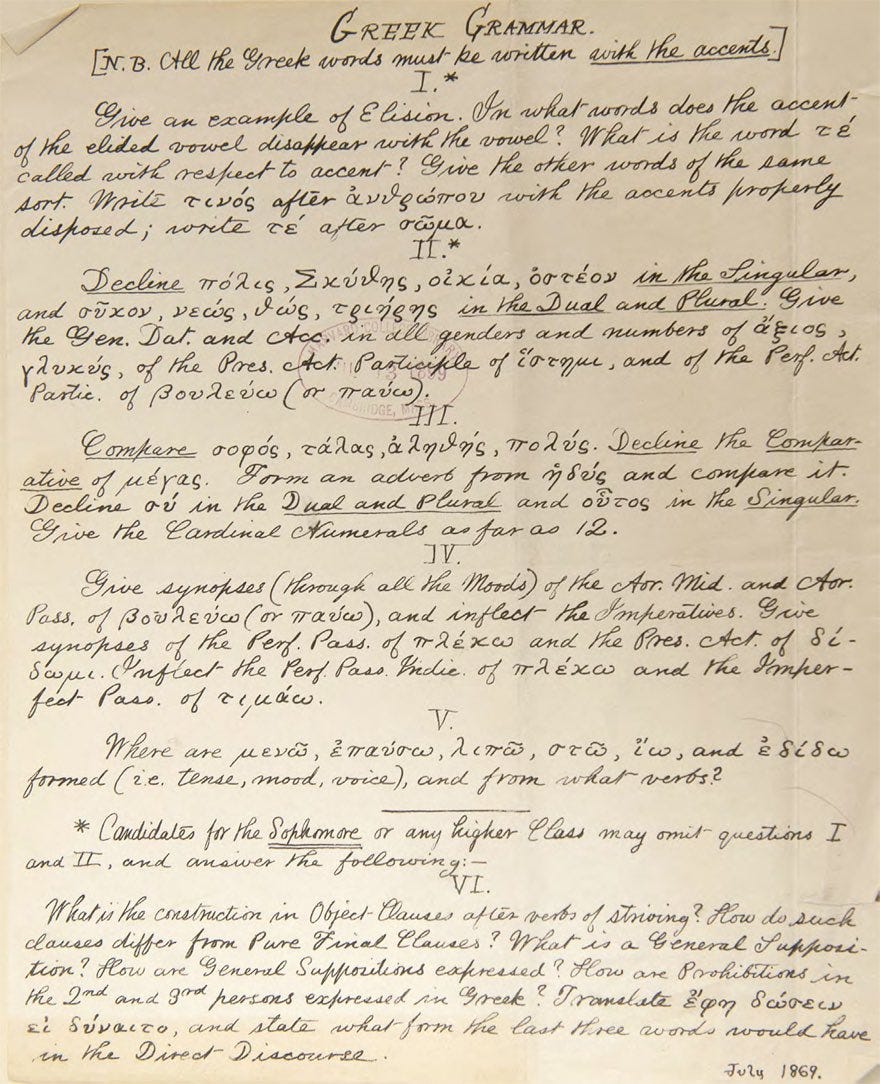 GREEK GRAMMAR.
[N.B. All the Greek words must be written with the accents.]
I.*
Give an example of Elision. In what words does the accent
of the elided vowel disappear with the vowel? What is the word τέ
called with respect to accent? Give the other words of the same
sort. Write τινός after ἀνθρώπου with the accents properly
disposed; write τέ after σῶμα.
II.*
Decline πόλις, Σκύθης, οἰκία, ὀστέον in the Singular,
and σῦκον, νεώς, θώς, τριήρης in the Dual and Plural. Give
the Gen. Dat. and Acc. in all genders and numbers of ἄξιος,
γλυκύς, of the Pres. Act. Participle of ἵστημι, and of the Perf. Act.
Partic. of βουλεύω (or παύω).
HARVARD COLLEGE LIBRARY
1869
CAMBRIDGE, MASS.
III.
Compare σοφός, τάλας, ἀληθής, πολύς. Decline the Compar-
ative of μέγας. Form an adverb from ἡδύς and compare it.
Decline σύ in the Dual and Plural and οὗτος in the Singular.
Give the Cardinal Numerals as far as 12.
IV.
Give synopses (through all the Moods) of the Aor. Mid. and Aor.
Pass. of βουλεύω (or παύω), and inflect the Imperatives. Give
synopses of the Perf. Pass. of πλέκω and the Pres. Act. of δί-
δωμι. Inflect the Perf. Pass. Indic. of πλέκω and the Imper-
fect Pass. of τιμάω.
V.
Where are μενῶ, ἐπαύσω, λιπῶ, στῶ, ἴω, and ἐδίδω
formed (i.e. tense, mood, voice), and from what verbs?
* Candidates for the Sophomore or any higher Class may omit questions I
and II, and answer the following:—
VI.
What is the construction in Object Clauses after verbs of striving? How do such
clauses differ from Pure Final Clauses? What is a General Supposi-
tion? How are General Suppositions expressed? How are Prohibitions in
the 2nd and 3rd persons expressed in Greek? Translate ἔφη δώσειν
εἰ δύναιτο, and state what form the last three words would have
in the Direct Discourse.
July 1869.